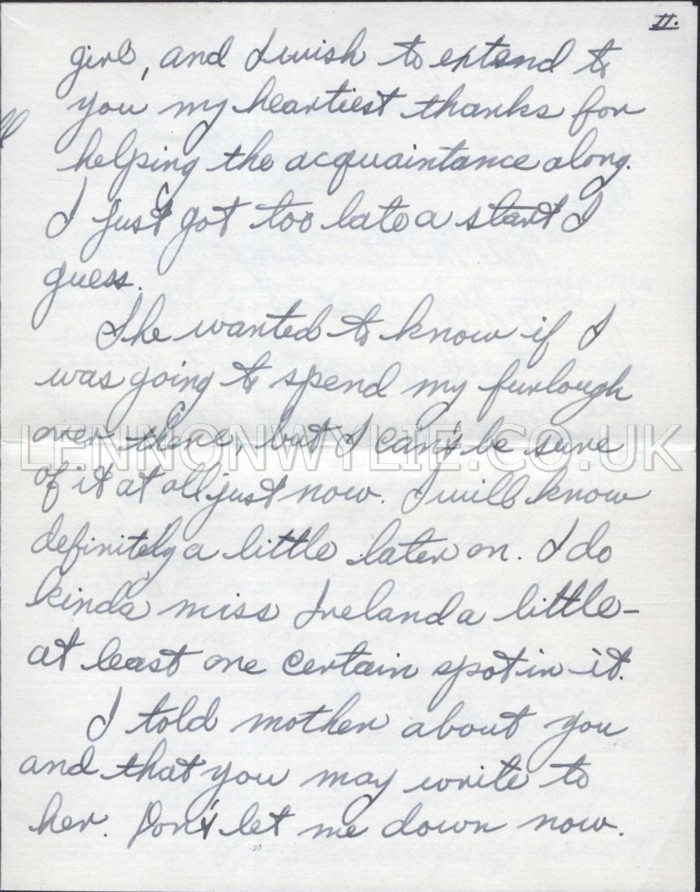 II.
girl, and I wish to extend to
you my heartiest thanks for
helping the acquaintance along.
I just got too late a start I
guess.
She wanted to know if I
was going to spend my furlough
over there, but I can't be sure
of it at all just now. I will know
definitely a little later on. I do
kinda miss Ireland a little -
at least one certain spot in it.
I told mother about you
and that you may write to
her. Don't let me down now.
LENNONWYLIE.CO.UK